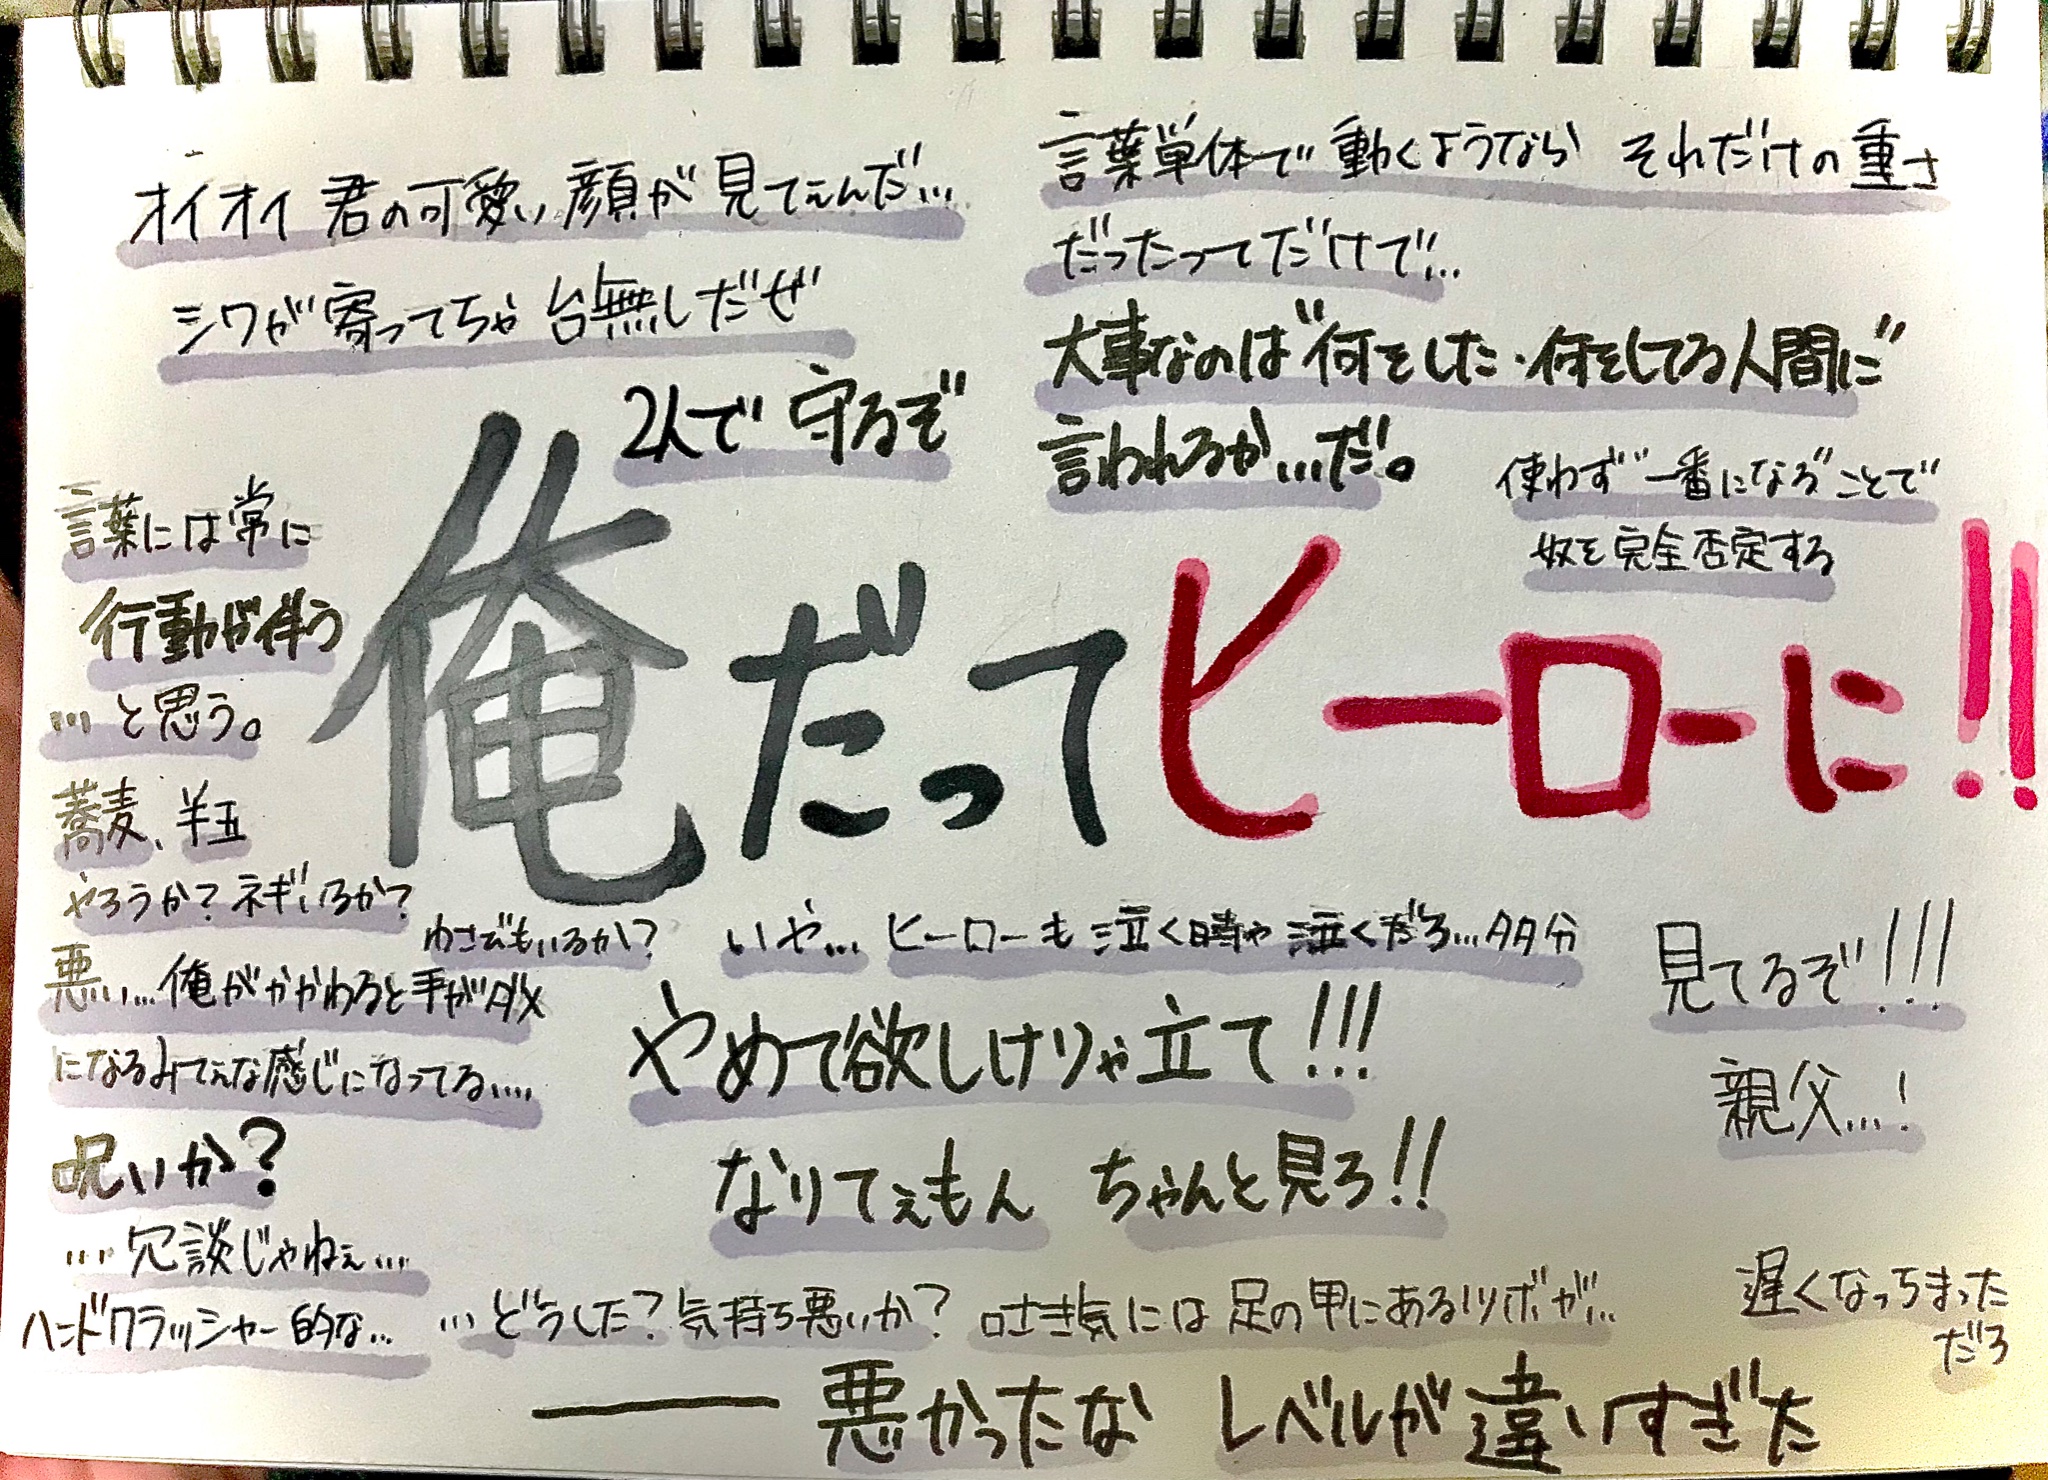 オイオイ 君の可愛い顔が 見てぇんだ…
シワが寄ってちゃ 台無しだぜ
言葉単体で 動くようなら それだけの重さ
だったってだけで…
大事なのは"何をした・何をしてる人間に"
言われるか…だ。
2人で 守るぞ
使わず"一番になる"ことで
奴を完全否定する
言葉には常に
行動が伴う
…と思う。
俺だってヒーローに!!
蕎麦、
やろうか?ネギいるか?
わさびもいるか?
悪ぃ…俺がかかわると手がダメ
になるみてぇな感じになってる….
呪いか?
…冗談じゃねぇ…
ハンドクラッシャー的な…
いや… ヒーローも 泣く時ゃ 泣くだろ…多分
やめて欲しけりゃ立て!!!
なりてぇもん ちゃんと見ろ!!
見てるぞ!!!
親父…!
…どうした?気持ち悪いか? 吐き気には 足の甲にあるツボが…
遅くなっちまった
だろ
―― 悪かったな レベルが違いすぎた